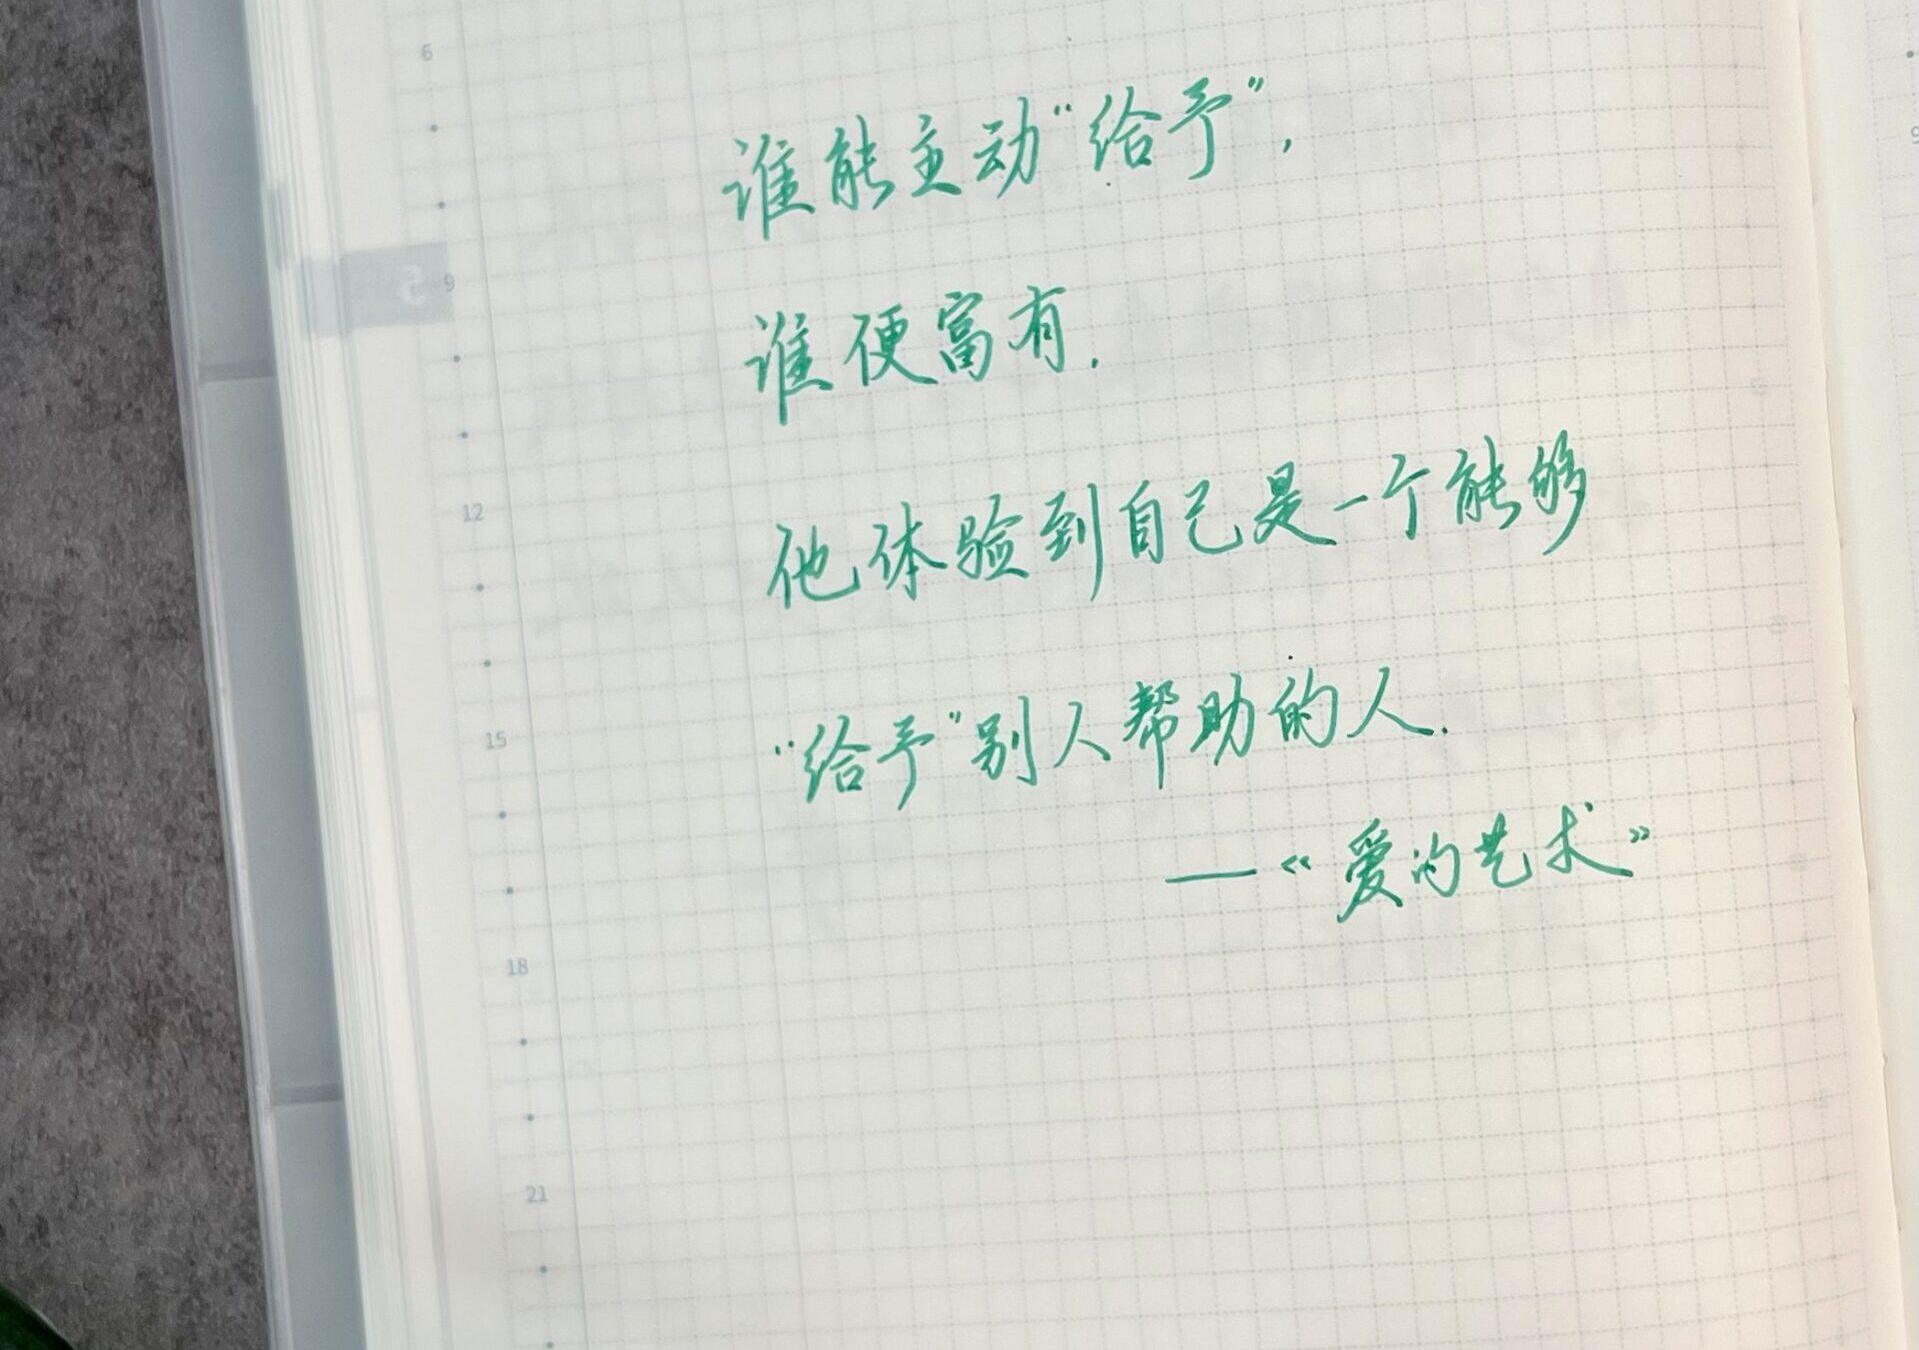 谁能主动“给予”，
谁便富有.
他体验到自己是一个能够
“给予”别人帮助的人.
—《爱的艺术》
6
9
12
15
18
21
5